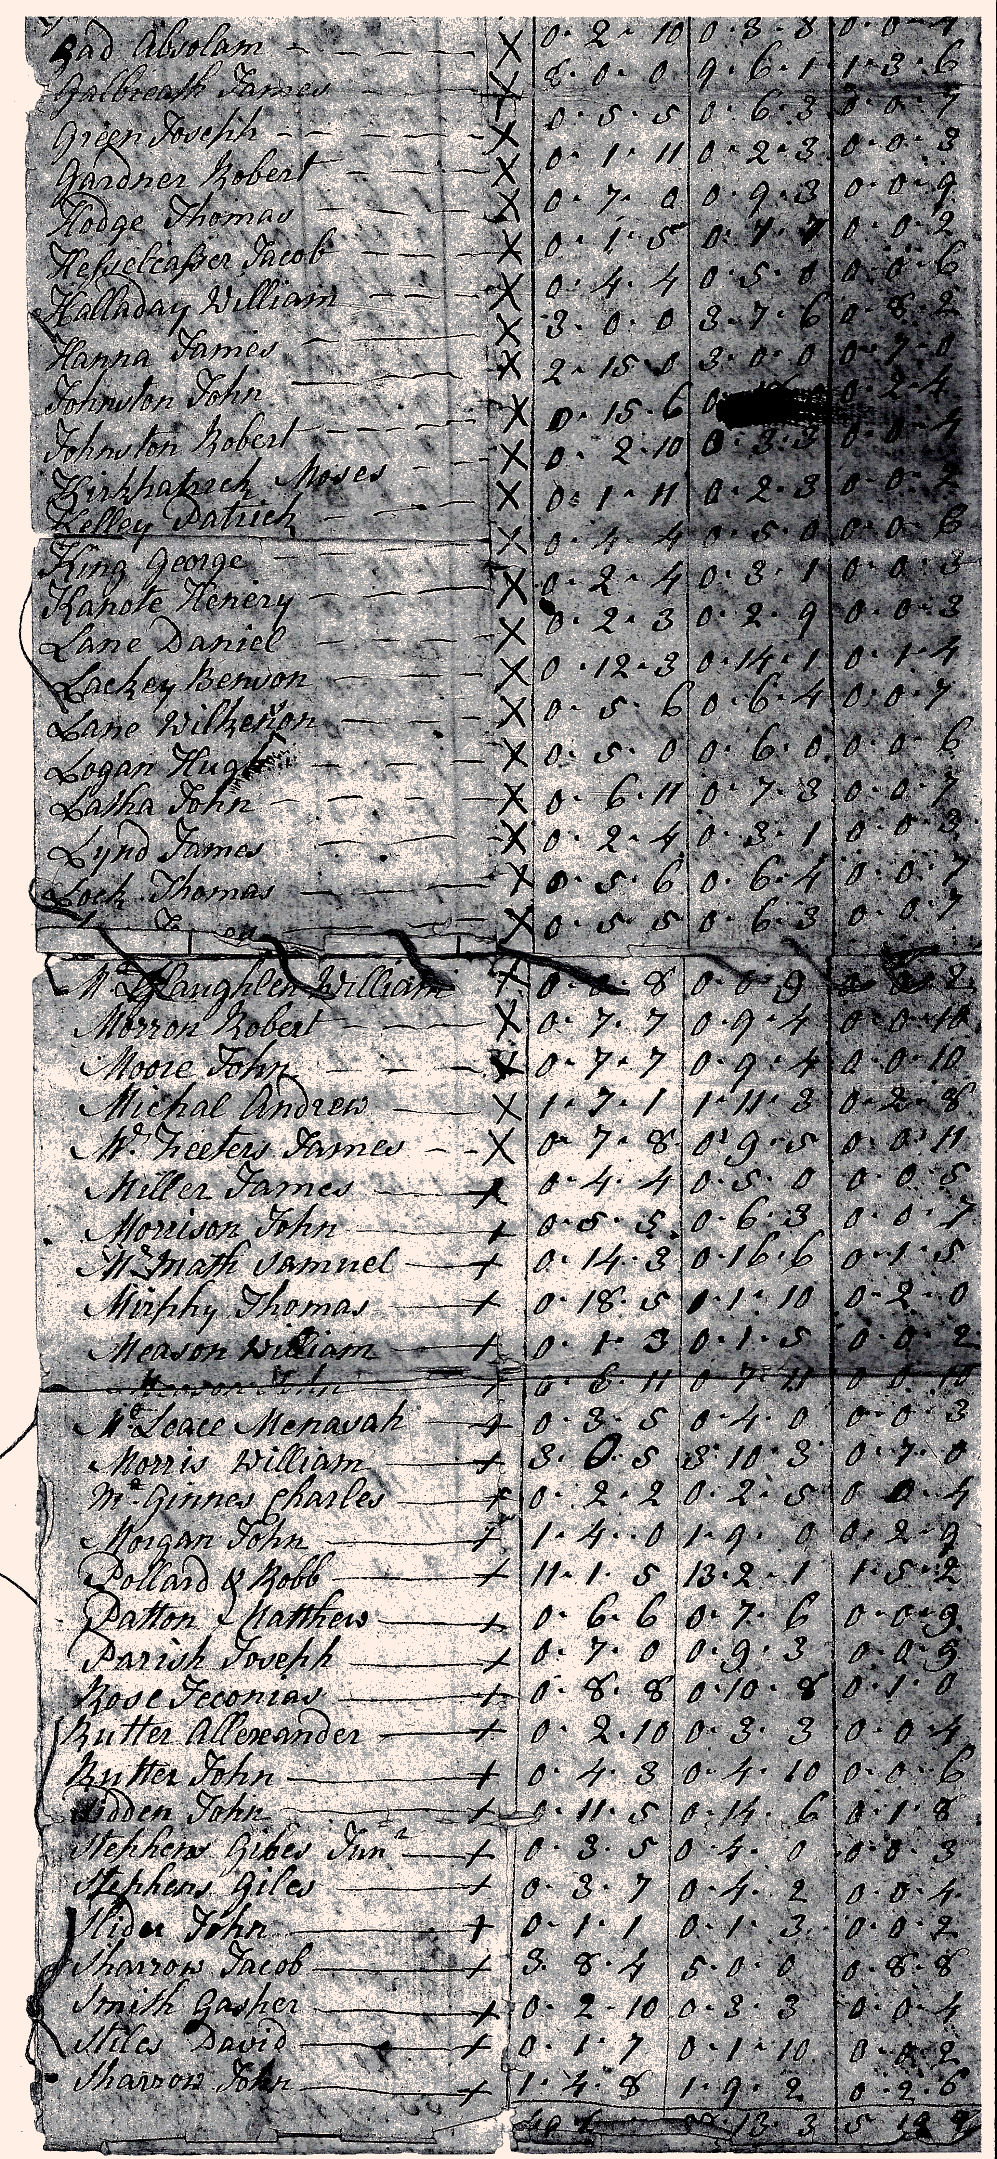 Absolam X 0·2·10 0·3·3 0·0·4
Galbreath James X 8·0·0 9·6·1 1·3·6
Green Joseph X 0·5·5 0·6·3 0·0·7
Gardner Robert X 0·1·11 0·2·3 0·0·3
Hodge Thomas X 0·7·0 0·9·3 0·0·9
Jacob X 0·1·5 0·1·7 0·0·2
Halladay William X 0·4·4 0·5·0 0·0·6
Hanna James X 3·0·0 3·7·6 0·8·2
Johnston John X 2·15·0 3·0·0 0·7·0
Johnston Robert X 0·15·6 0 0·2·4
Kirkpatrick Moses X 0·2·10 0·3·3 0·0·4
Kelley Patrick X 0·1·11 0·2·3 0·0·2
King George X 0·4·4 0·5·0 0·0·6
Kanote Henery X 0·2·4 0·3·1 0·0·3
Lane Daniel X 0·2·3 0·2·9 0·0·3
Lackey Benson X 0·12·3 0·14·1 0·1·4
Lane Wilkenson X 0·5·6 0·6·4 0·0·7
Logan Hugh X 0·5·0 0·6·0 0·0·6
Latha John X 0·6·11 0·7·3 0·0·7
Lynd James X 0·2·4 0·3·1 0·0·3
Lock Thomas X 0·5·6 0·6·4 0·0·7
X 0·5·5 0·6·3 0·0·7
Mc Glaughlen William X 0·0·8 0·0·9 2
Morron Robert X 0·7·7 0·9·4 0·0·10
Moore John X 0·7·7 0·9·4 0·0·10
Michal Andrew X 1·7·1 1·11·3 0·2·8
Mc Feeters James X 0·7·8 0·9·5 0·0·11
Miller James X 0·4·4 0·5·0 0·0·5
Morrison John + 0·5·5 0·6·3 0·0·7
Mc Math Samuel + 0·14·3 0·16·6 0·1·5
Mirphy Thomas + 0·18·5 1·1·10 0·2·0
Meason William + 0·1·3 0·1·5 0·0·2
John + 0·6·11 0·7·11 0·0·10
Mc Leace Menasah + 0·3·5 0·4·0 0·0·3
Morris William + 3·0·5 3·10·3 0·7·0
Mc Ginnes Charles + 0·2·2 0·2·5 0·0·4
Morgan John + 1·4·0 1·9·0 0·2·9
Pollard & Robb + 11·1·5 13·2·1 1·5·2
Patton Matthew + 0·6·6 0·7·6 0·0·9
Parish Joseph + 0·7·0 0·9·3 0·0·9
Rose Jeconias + 0·8·8 0·10·8 0·1·0
Rutter Allexander + 0·2·10 0·3·3 0·0·4
Rutter John + 0·4·3 0·4·10 0·0·6
John + 0·11·5 0·14·6 0·1·8
Stephens Gibes Junr + 0·3·5 0·4·0 0·0·3
Stephens Giles + 0·3·7 0·4·2 0·0·4
Slider John + 0·1·1 0·1·3 0·0·2
Sharrow Jacob + 3·8·4 5·0·0 0·8·8
Smith Gasper + 0·2·10 0·3·3 0·0·4
Stiles David + 0·1·7 0·1·10 0·0·2
Sharrow John + 1·4·8 1·9·2 0·2·6
13·3 5